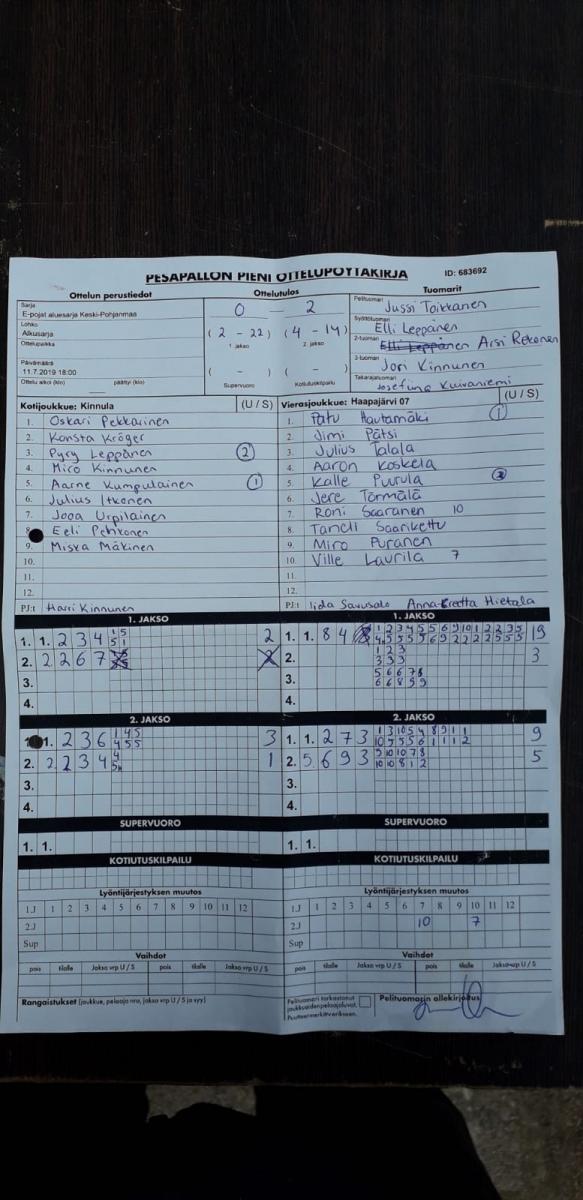 PESÄPALLON PIENI OTTELUPÖYTÄKIRJA ID: 683692
Ottelun perustiedot Ottelutulos Tuomarit
Sarja
E-pojat aluesarja Keski-Pohjanmaa
Lohko
Alkusarja
Ottelupaikka
Päivämäärä
11.7.2019 18:00
Ottelu alkoi (klo) päättyi (klo)
0 — 2
( 2 - 22 ) ( 4 - 14 )
1. jakso 2. jakso
( - ) ( - )
Supervuoro Kotiutuskilpailu
Pelituomari Jussi Toikkanen
Syöttötuomari Elli Leppänen
2-tuomari Elli Leppänen Arsi Rekonen
3-tuomari Jori Kinnunen
Takarajatuomari Josefiina Kuivaniemi
Kotijoukkue: Kinnula (U / S)
1. Oskari Pekkarinen
2. Konsta Kröger
3. Pyry Leppänen 2
4. Miro Kinnunen
5. Aarne Kumpulainen 1
6. Julius Itkonen
7. Jooa Urpilainen
8. Eeli Pehkonen
9. Miska Mäkinen
10.
11.
12.
PJ:t Harri Kinnunen
Vierasjoukkue: Haapajärvi 07 (U / S)
1. Patu Hautamäki 1
2. Jimi Pätsi
3. Julius Talala
4. Aaron Koskela
5. Kalle Puurula 2
6. Jere Törmälä
7. Roni Saaranen 10
8. Taneli Saarikettu
9. Miro Puranen
10. Ville Laurila 7
11.
12.
PJ:t Iida Savusalo Anna-Greetta Hietala
1. JAKSO
1. 1. 2 3 4 2
2. 2 2 6 7
3.
4.
1. JAKSO
1. 1. 8 4 19
2. 3
3.
4.
2. JAKSO
1. 2 3 6 1 4 5 3
4 5 5
2. 2 2 3 4 1
3.
4.
2. JAKSO
1. 1. 2 7 3 9
2. 5 6 9 3 9 10 7 8 5
10 10 8 1 2
3.
4.
SUPERVUORO
1. 1.
SUPERVUORO
1. 1.
KOTIUTUSKILPAILU
KOTIUTUSKILPAILU
Lyöntijärjestyksen muutos
1.J 1 2 3 4 5 6 7 8 9 10 11 12
2.J
Sup
Lyöntijärjestyksen muutos
1.J 1 2 3 4 5 6 7 8 9 10 11 12
2.J 10 7
Sup
Vaihdot
pois tilalle Jakso vrp U / S pois tilalle Jakso vrp U / S
Vaihdot
pois tilalle Jakso vrp U / S pois tilalle Jakso vrp U / S
Rangaistukset (joukkue, pelaaja nro, jakso vrp U / S ja syy)
Pelituomari tarkastanut
joukkueiden pelaajaluvat.
Puutteet merkitty erikseen.
Pelituomarin allekirjoitus